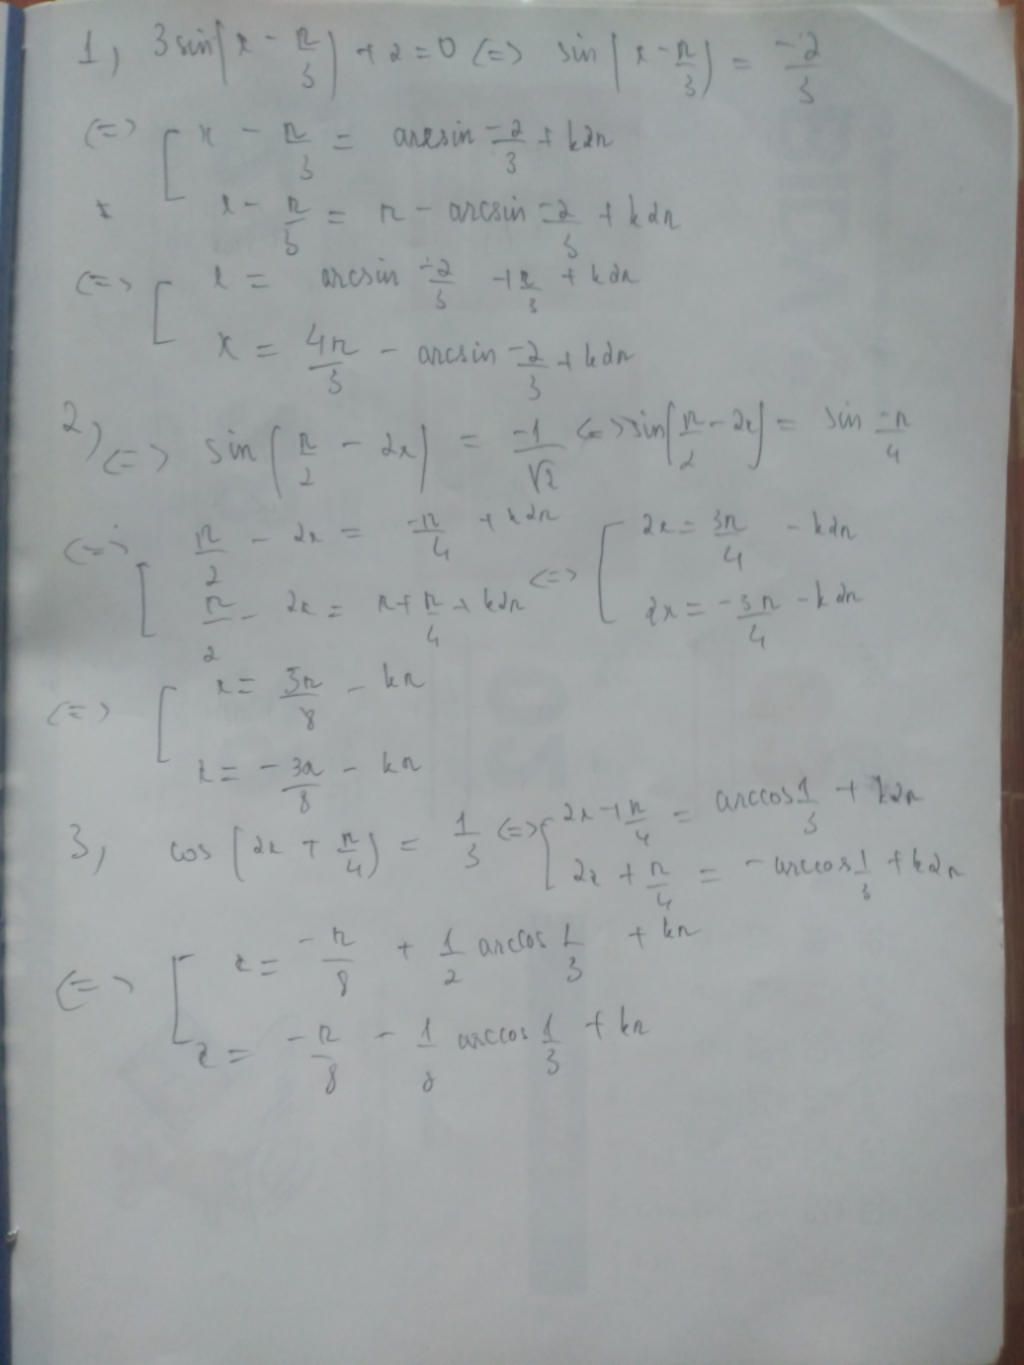 1, 3 sin(x - π/3) + 2 = 0 <=> sin(x - π/3) = -2/3
<=> [ x - π/3 = arcsin -2/3 + k2π
x - π/3 = π - arcsin -2/3 + k2π
<=> [ x = arcsin -2/3 + π/3 + k2π
x = 4π/3 - arcsin -2/3 + k2π
2) <=> sin(π/2 - 2x) = -1/√2 <=> sin(π/2 - 2x) = sin -π/4
<=> [ π/2 - 2x = -π/4 + k2π <=> [ 2x = 3π/4 - k2π
π/2 - 2x = π + π/4 + k2π 2x = -3π/4 - k2π
<=> [ x = 3π/8 - kπ
x = -3π/8 - kπ
3, cos(2x + π/4) = 1/3 <=> [ 2x + π/4 = arccos 1/3 + k2π
2x + π/4 = -arccos 1/3 + k2π
<=> [ x = -π/8 + 1/2 arccos 1/3 + kπ
x = -π/8 - 1/2 arccos 1/3 + kπ